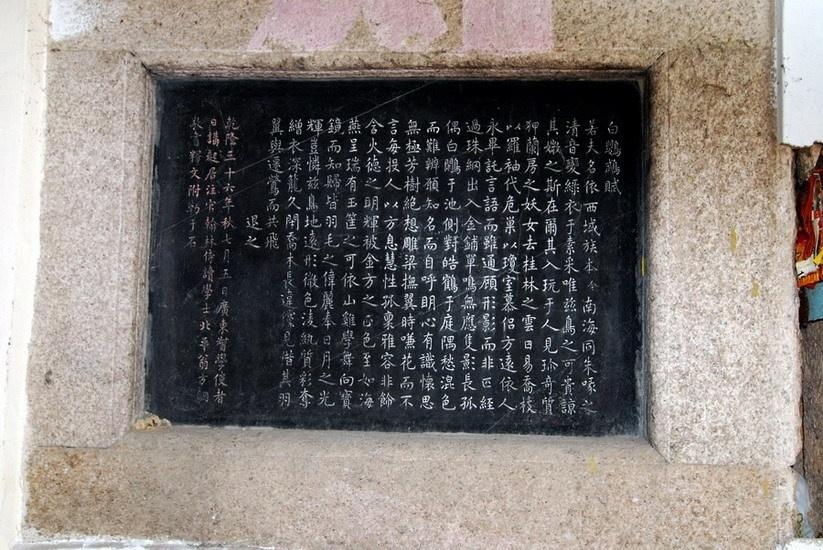 白鸚鵡賦
若夫名依西域族本今南海同朱喙之
清音變綠衣于素采唯茲鳥之可貴諒
其媺之斯在爾其入玩于人見珎奇質
狎蘭房之妖女去桂林之雲日易喬枝
以羅袖代危巢以瓊室慕侶方遠依人
永畢託言語而雖通顧形影而非匹經
過珠網出入金鋪單鳴無應隻影長孤
偶白鷳于池側對皓鶴于庭隅愁混色
而難辨願知名而自呼明心有識懷思
無極芳樹絕想雕梁撫翼時嗛花而不
言每投人以方息慧性孤稟雅容非飾
含火德之明輝被金方之正色至如海
燕呈瑞有玉筐之可依山雞學舞向寶
鏡而知歸皆羽毛之偉麗奉日月之光
輝豈憐茲鳥地遠形微色淩紈質彩奪
繒衣深籠久閉喬木長違儻見借其羽
翼與遷鶯而共飛
退之
乾隆三十六年秋七月五日廣東督學使者
日講起居注官翰林侍讀學士北平翁方綱
敬書釋文附于石